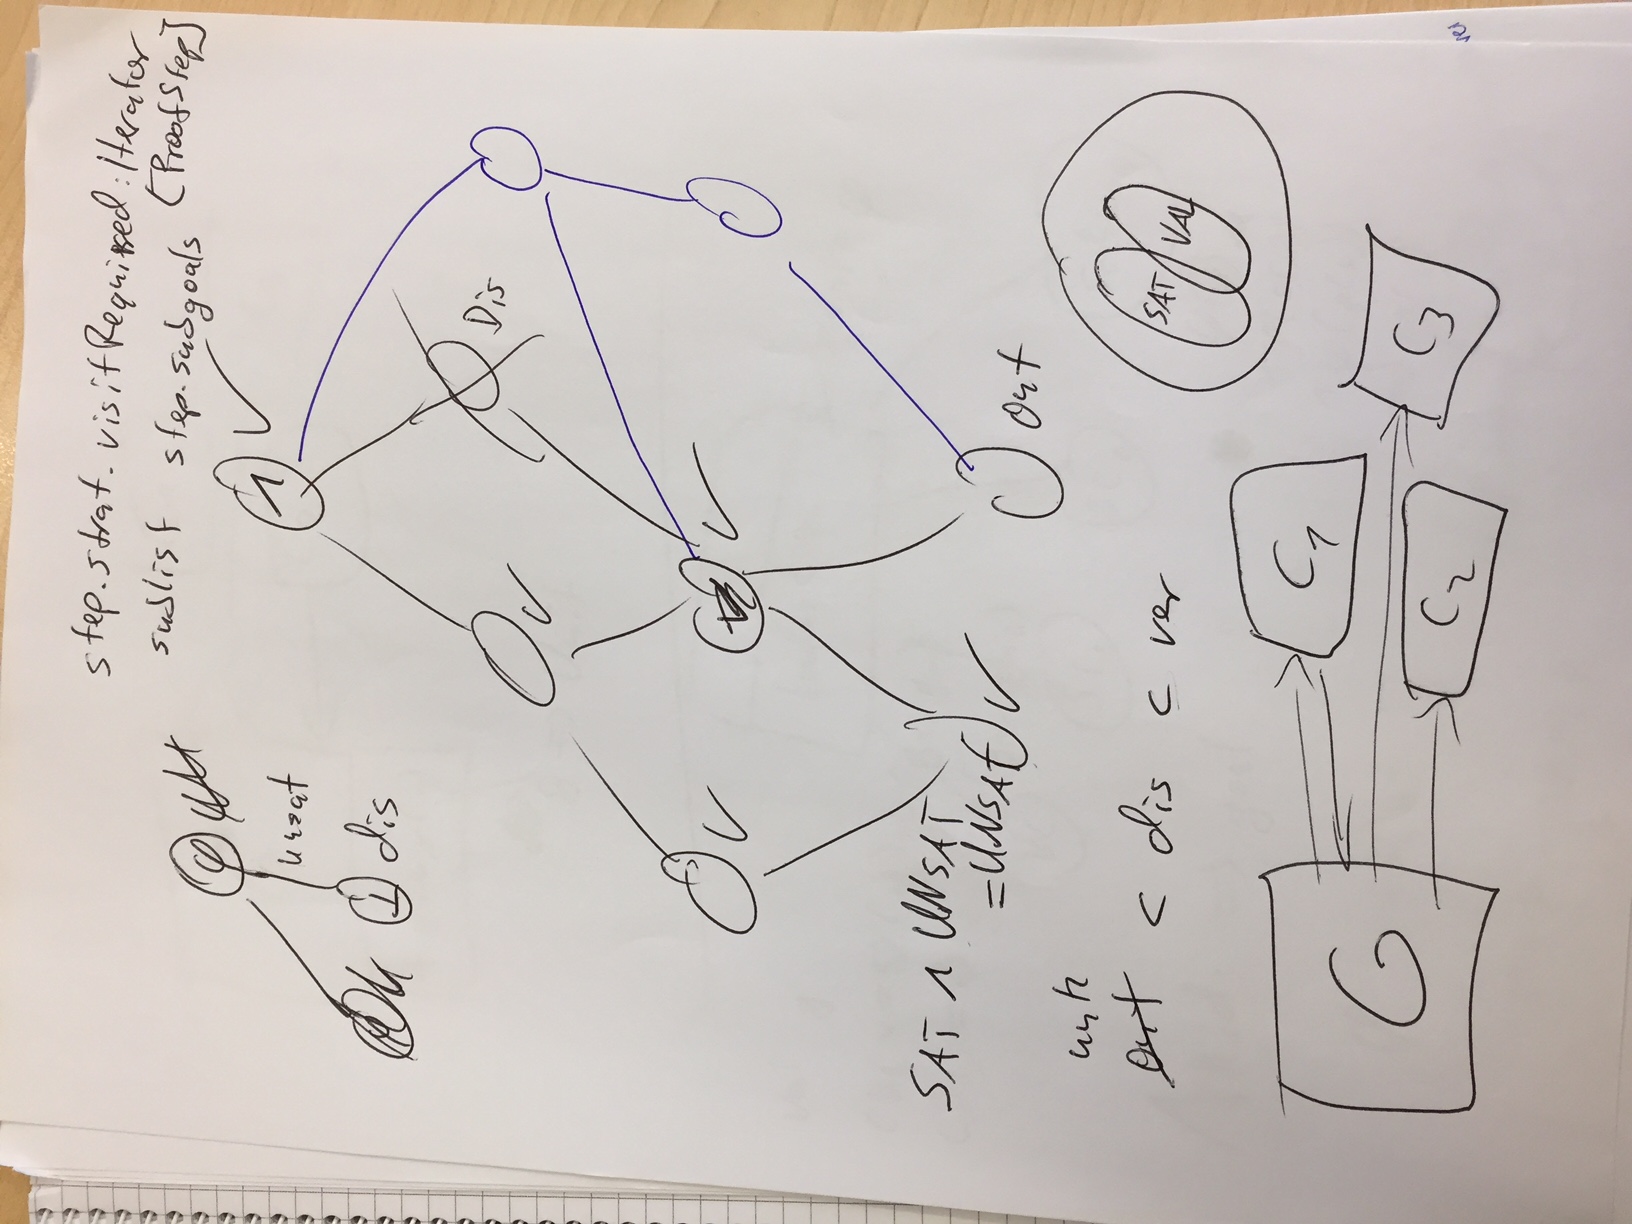 step.strat.visitRequired:Iterator
sublist step.subgoals [ProofStep]
φ
unsat
⊥ dis
1
Dis
SAT ∧ UNSAT
=UNSAT
out
unk
out < dis < ver
SAT VAL
G
C1
C2
C3